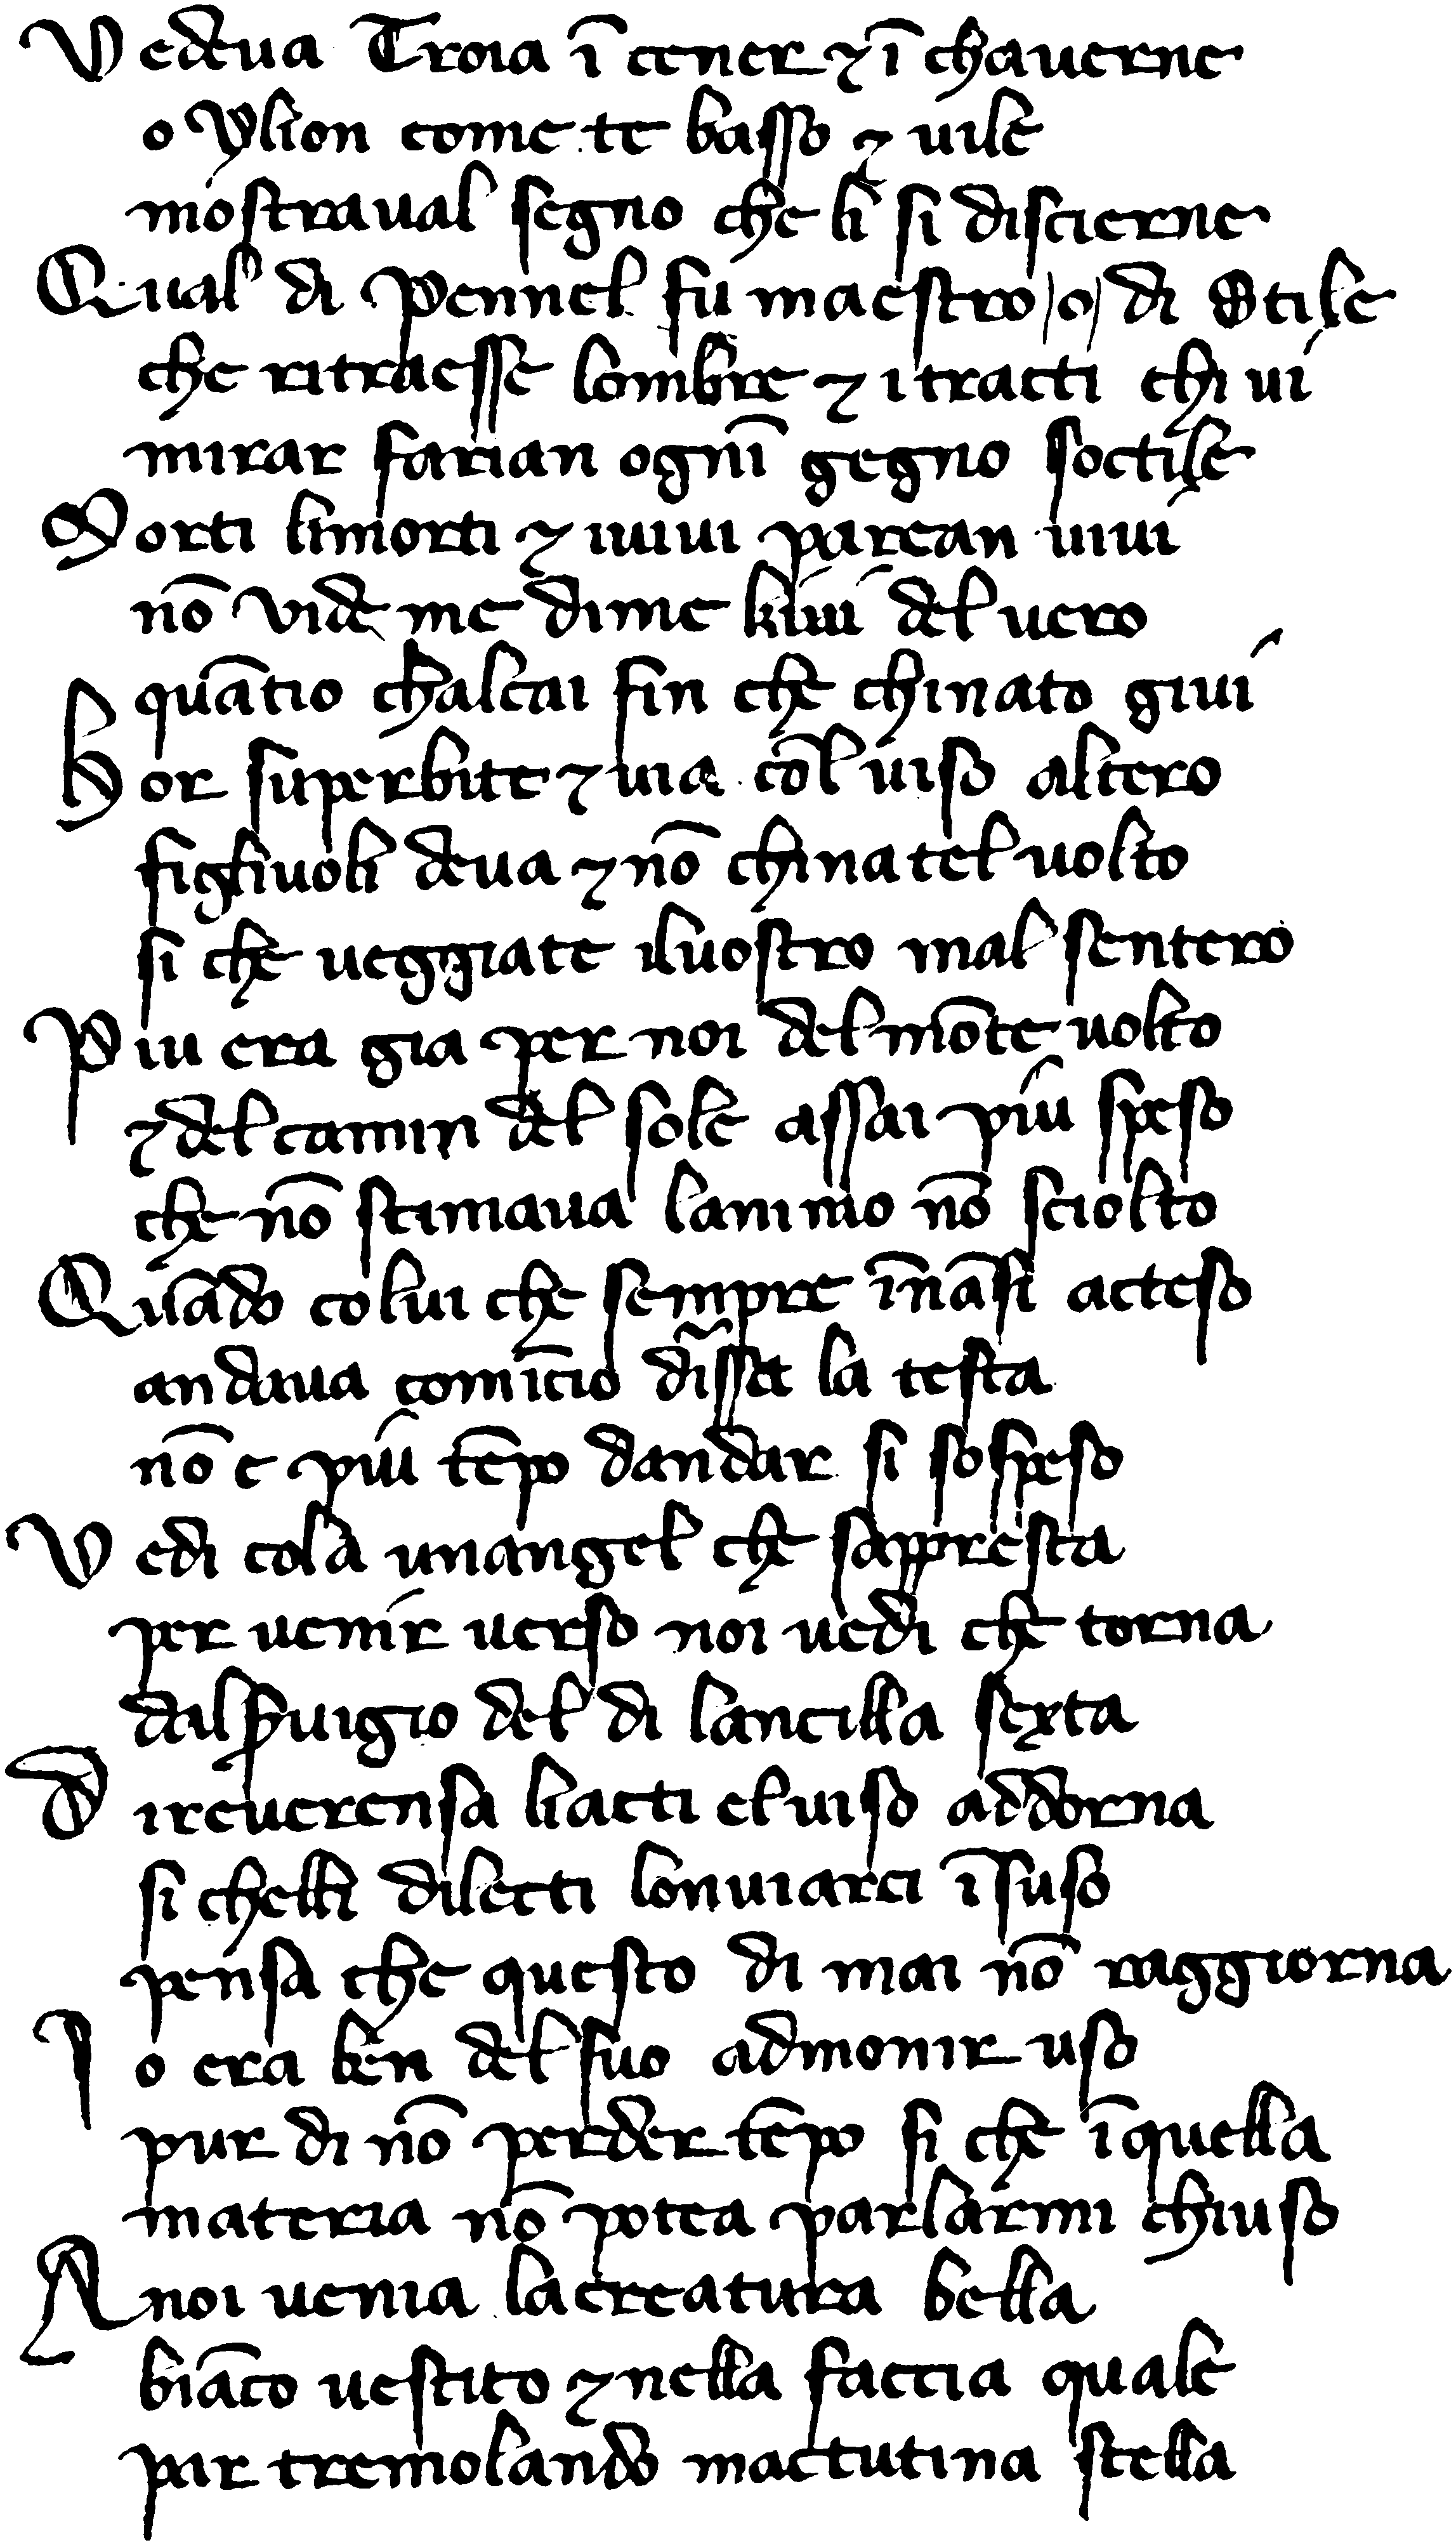 Vedeua Troia ī cener ⁊ ī chauerne
o ylion come te basso ⁊ uile
mostraual segno che li si discierne
Qual di pennel fu maestro /o/ di stile
che ritraesse lombre ⁊ i tracti chi ui
mirar farian ognī gegno soctile
Morti limorti ⁊ iuiui parean uiui
nō vide me di me kiui del uero
quātio chalcai fin che chinato giui
Hor superbite ⁊ uia cōl uiso altero
figliuoli deua ⁊ nō chinatel uolto
si che ueggiate iluostro mal sentero
Piu era gia per noi del mōte uolto
⁊ del camin del sole assai piu speso
che nō stimaua lanimo nō sciolto
Quādo colui che sempre īnāsi acteso
andaua comīcio diss la testa
nō e piu tēpo dandar si sospeso
Vedi cola unangel che sappresta
per uenir uerso noi uedi che torna
dal ꝓuigio del di lancilla sexta
Direuerensa liacti el uiso addorna
si chelli dilecti lonuiarci ī suso
pensa che questo di mai nō raggiorna
Io era ben del suo admonir uso
pur di nō perder tēpo si che ī quella
materia nō potea parlarmi chiuso
A noi uenia lacreatura bella
biāco uestito ⁊ nella faccia quale
par tremolando mactutina stella